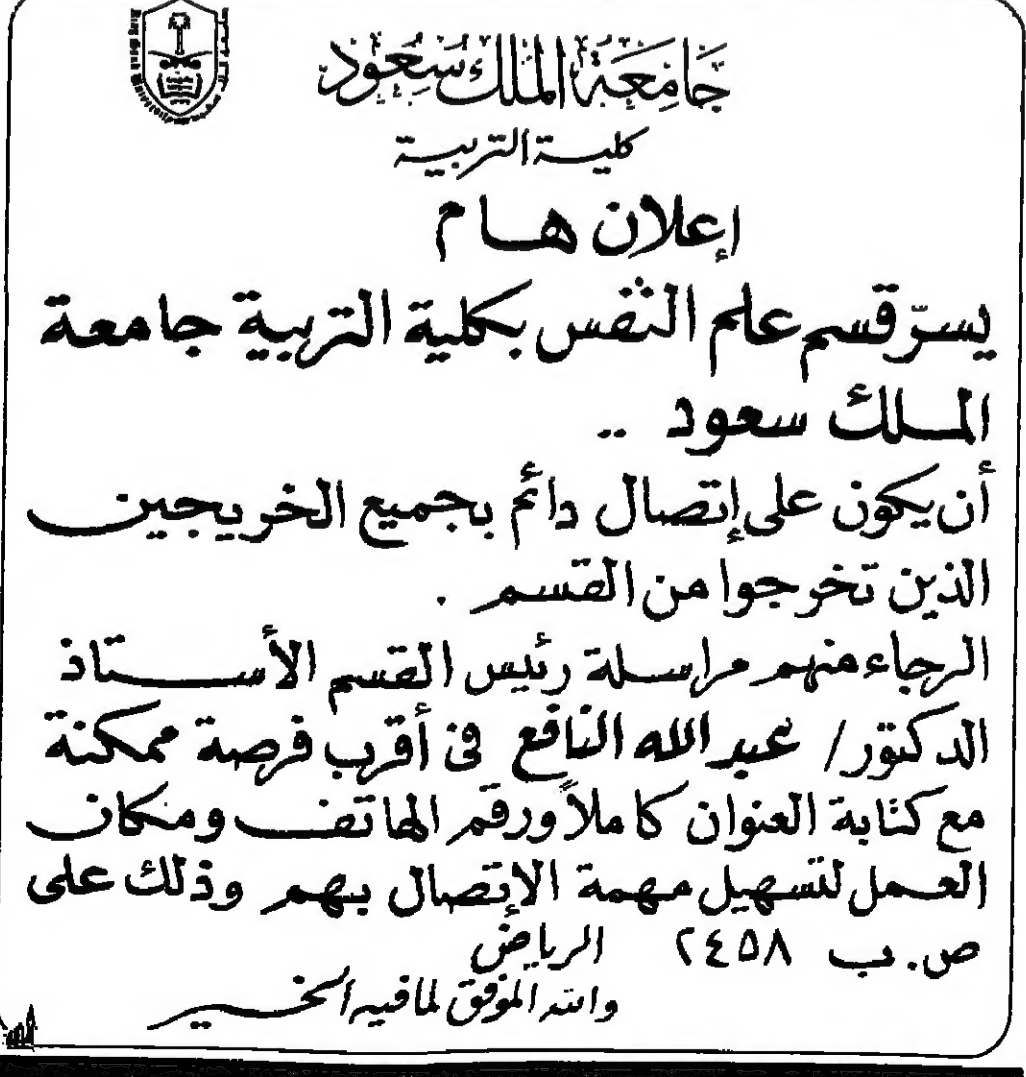 جامعة الملك سعود
كلية التربية
إعلان هام
يسرّ قسم علم النفس بكلية التربية جامعة
الملك سعود ..
أن يكون على إتصال دائم بجميع الخريجين
الذين تخرجوا من القسم .
الرجاء منهم مراسلة رئيس القسم الأستاذ
الدكتور / عبد الله النافع في أقرب فرصة ممكنة
مع كتابة العنوان كاملاً ورقم الهاتف ومكان
العمل لتسهيل مهمة الإتصال بهم وذلك على
ص . ب ٢٤٥٨ الرياض
والله الموفق لما فيه الخير